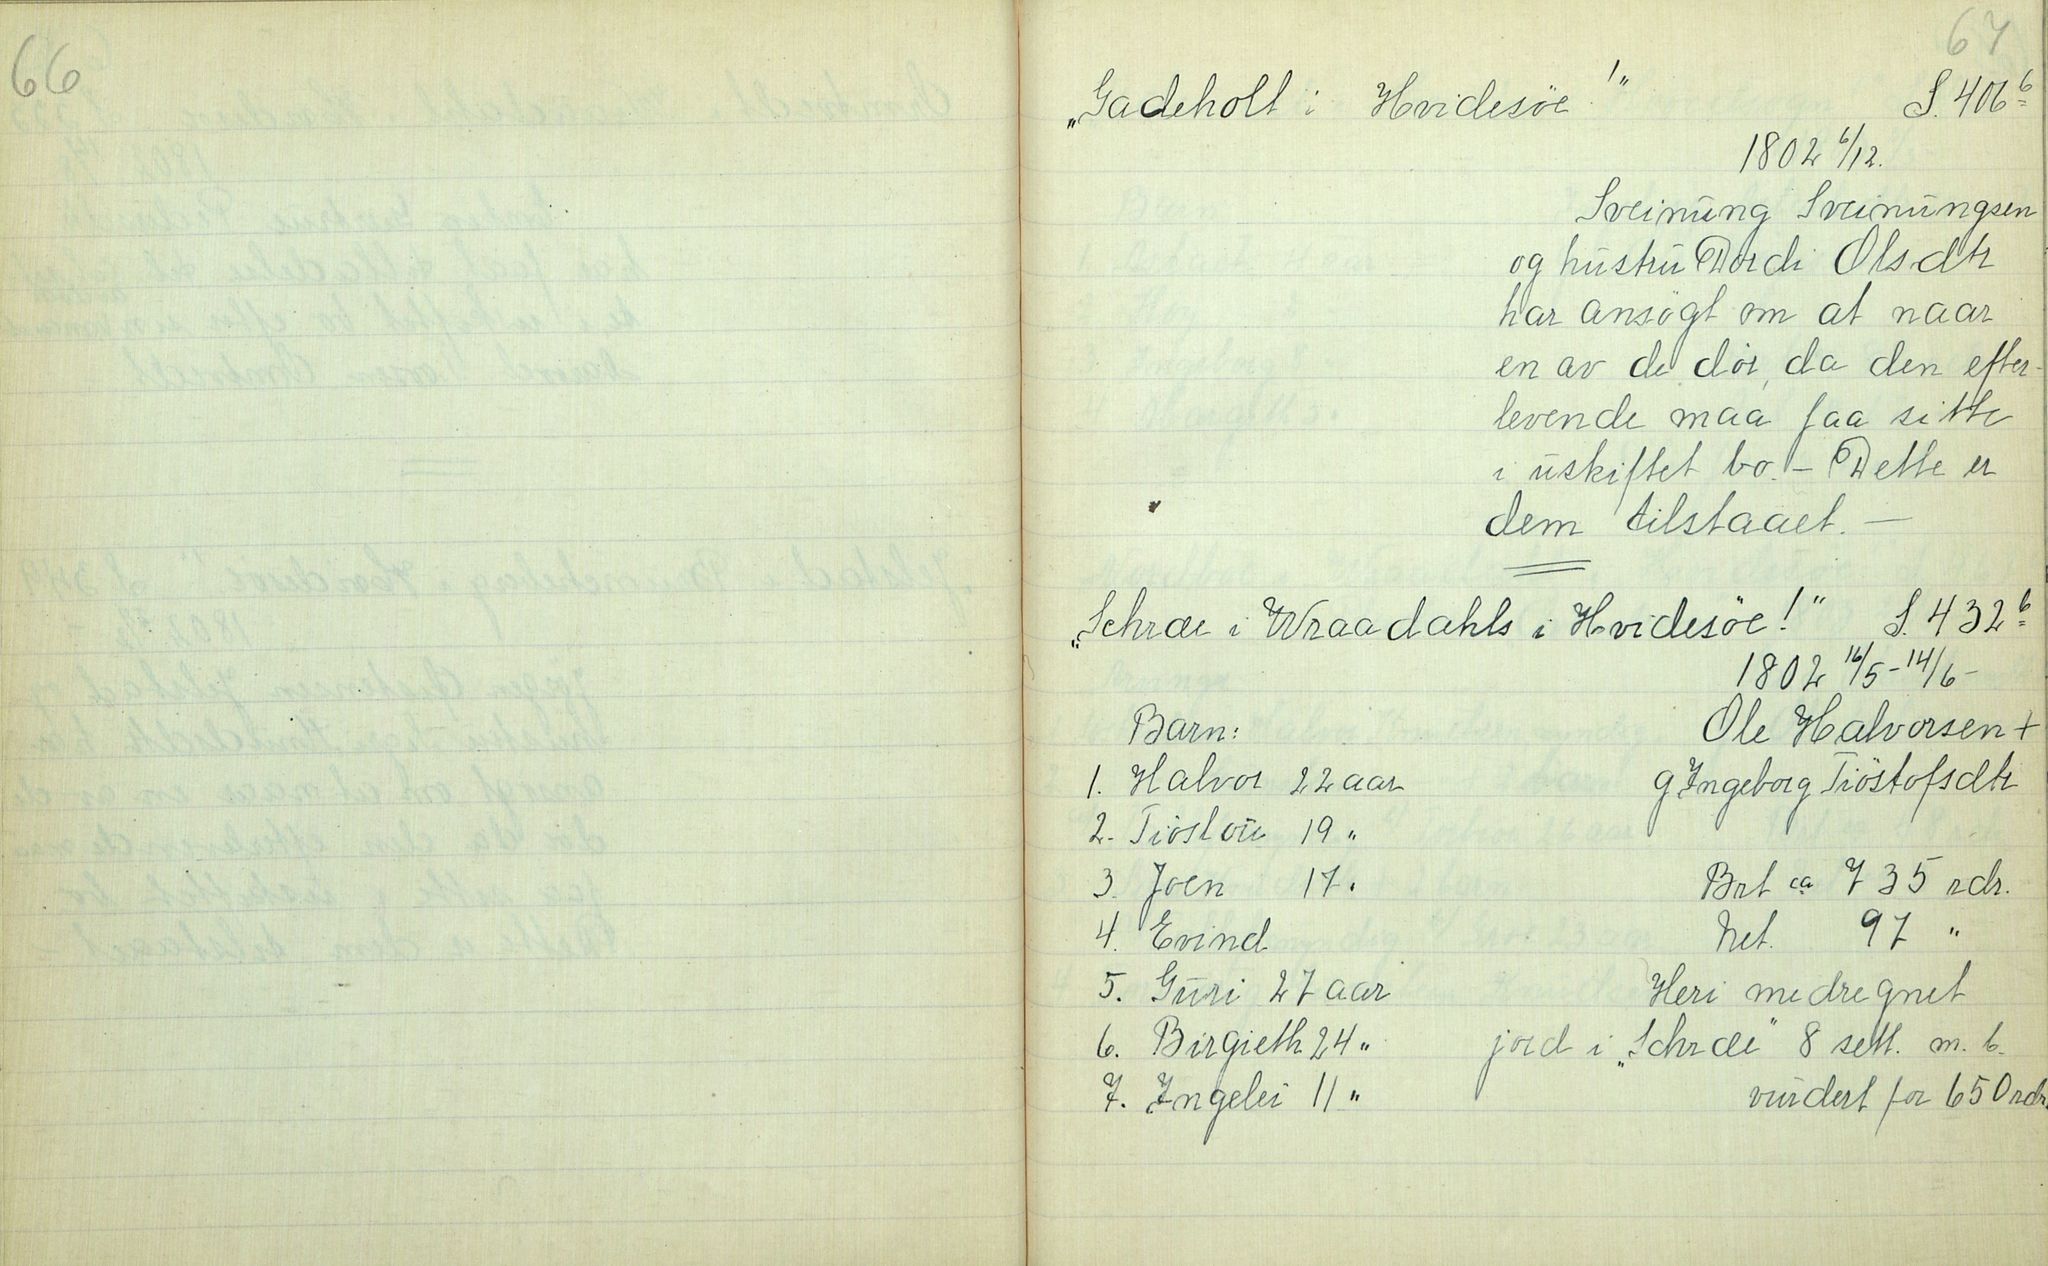 66
67
„Gadeholt i Hvidesöe!" S. 406 b
1802 6/12.
Sveinung Sveinungsen
og hustru Dordi Olsdtr
har ansögt om at naar
en av de dör, da den efter-
levende maa faa sitte
i uskiftet bo. – Dette er
dem tilstaaet. –
„Schræe i Wraadahls i Hvidesöe!" S. 432 b
1802 16/5 - 14/6 -
Barn: Ole Halvorsen +
1. Halvor 22 aar g Ingeborg Tiöstofsdtr
2. Tiöstou 19 "
3. Joen 17 " Brt ca 735 rdr.
4. Evind Net. 97 "
5. Guri 27 aar Heri medregnet
6. Birgieth 24 " jord i „Schræe" 8 sett. m. b.
7. Ingelei 11 " vurdert for 650 rdr.